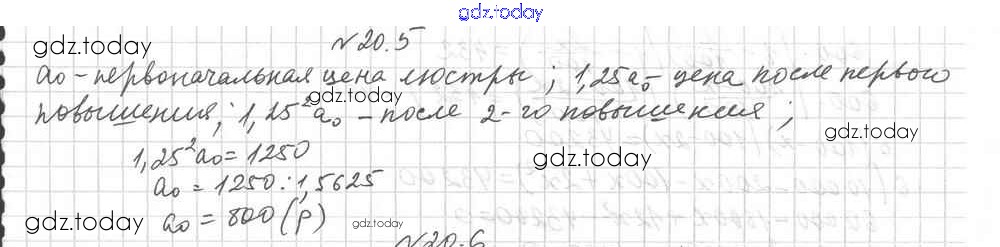 gdz.today
№ 20.5
gdz.today
a₀ - первоначальная цена люстры; 1,25a₀ - цена после первого
gdz.today
повышения; 1,25²a₀ - после 2-го повышения;
gdz.today
1,25²a₀ = 1250
gdz.today
a₀ = 1250 : 1,5625
gdz.today
a₀ = 800 (р)
gdz.today
№ 20.6